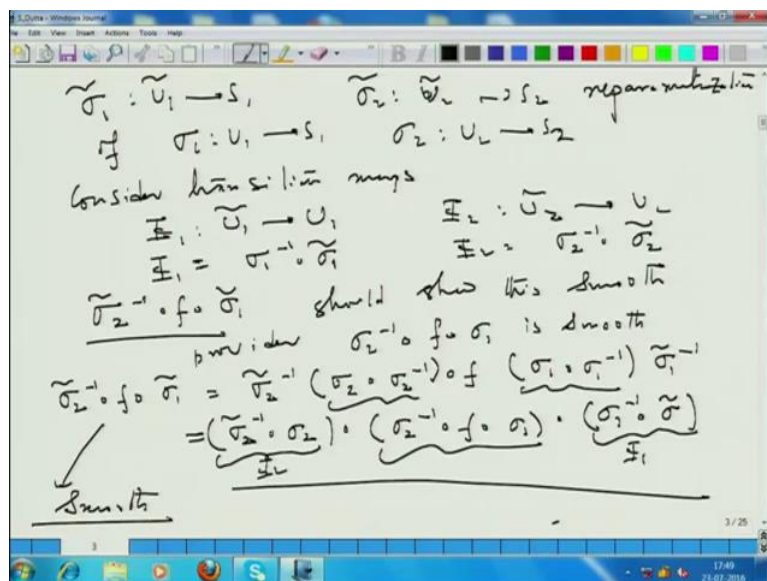 S_Dutta - Windows Journal
File Edit View Insert Actions Tools Help
σ̃₁ : Ũ₁ → S₁   σ̃₂ : Ũ₂ → S₂ reparametrization
If σ₁ : U₁ → S₁   σ₂ : U₂ → S₂
Consider transition maps
Φ₁ : Ũ₁ → U₁   Φ₂ : Ũ₂ → U₂
Φ₁ = σ₁⁻¹ ∘ σ̃₁   Φ₂ = σ₂⁻¹ ∘ σ̃₂
σ̃₂⁻¹ ∘ f ∘ σ̃₁ should show this smooth
provided σ₂⁻¹ ∘ f ∘ σ₁ is smooth
σ̃₂⁻¹ ∘ f ∘ σ̃₁ = σ̃₂⁻¹ (σ₂ ∘ σ₂⁻¹) ∘ f (σ₁ ∘ σ₁⁻¹) σ̃₁⁻¹
= (σ̃₂⁻¹ ∘ σ₂) ∘ (σ₂⁻¹ ∘ f ∘ σ₁) ∘ (σ₁⁻¹ ∘ σ̃)
Φ₂   Φ₁
Smooth
3 / 25
3
17:49
23-07-2016